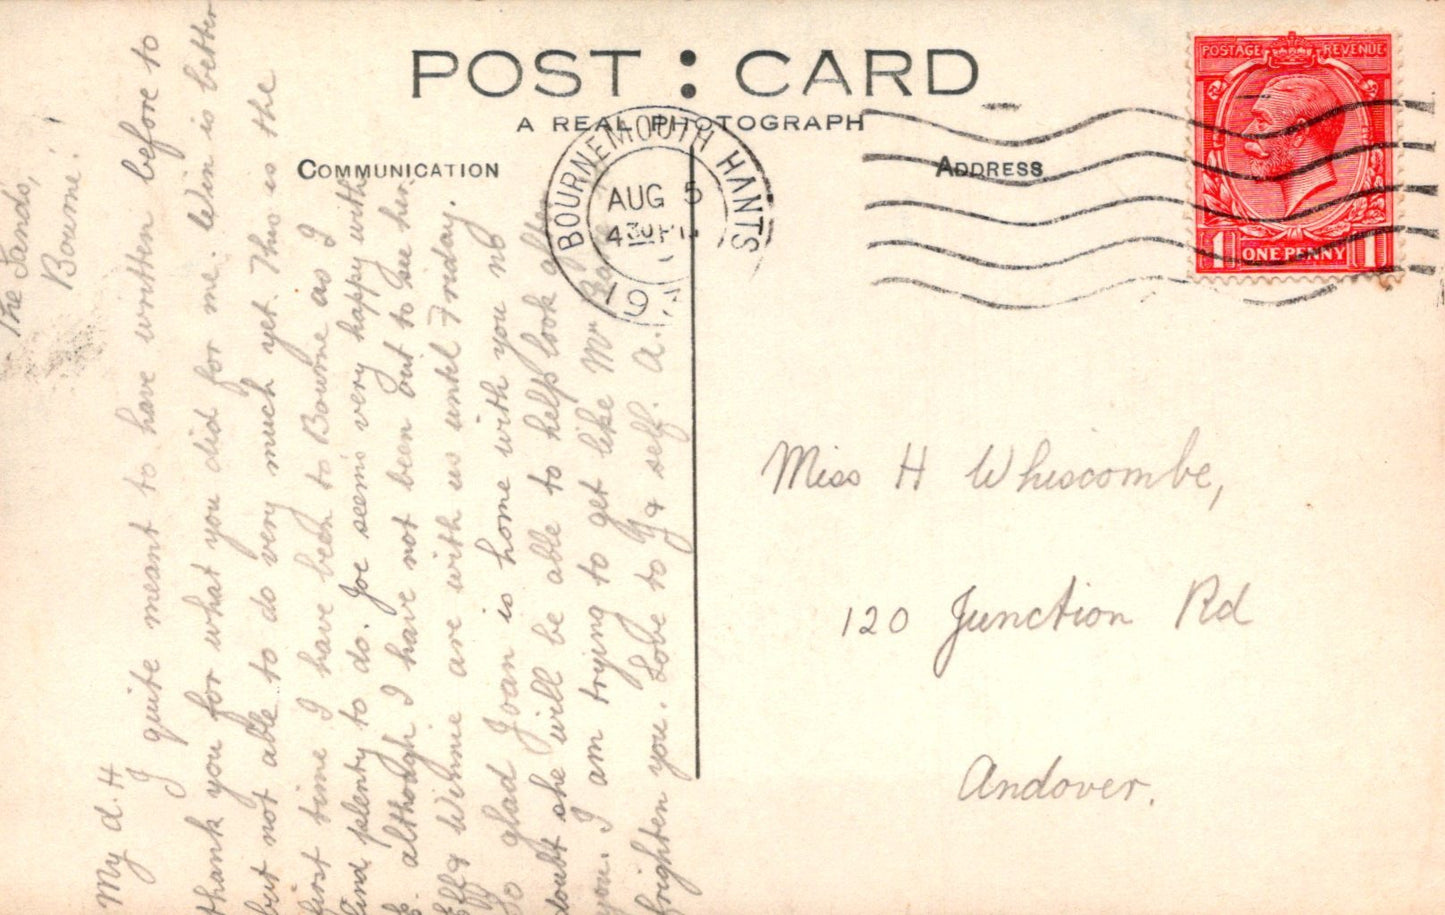 POST : CARD
A REAL PHOTOGRAPH
COMMUNICATION
ADDRESS
BOURNEMOUTH HANTS
AUG 5
430 PM
19
POSTAGE REVENUE
1 ONE PENNY 1
The Sands,
Bourne.
My d. H
I quite meant to have written before to
thank you for what you did for me. Win is better
but not able to do very much yet. This is the
first time I have been to Bourne as I
find plenty to do. Joe seems very happy with
although I have not been out to see her.
Eff & Winnie are with us until Friday.
So glad Joan is home with you no
doubt she will be able to help look after
you. I am trying to get like Mr
brighten you. Love to & self. A.
Miss H Whiscombe,
120 Junction Rd
Andover.